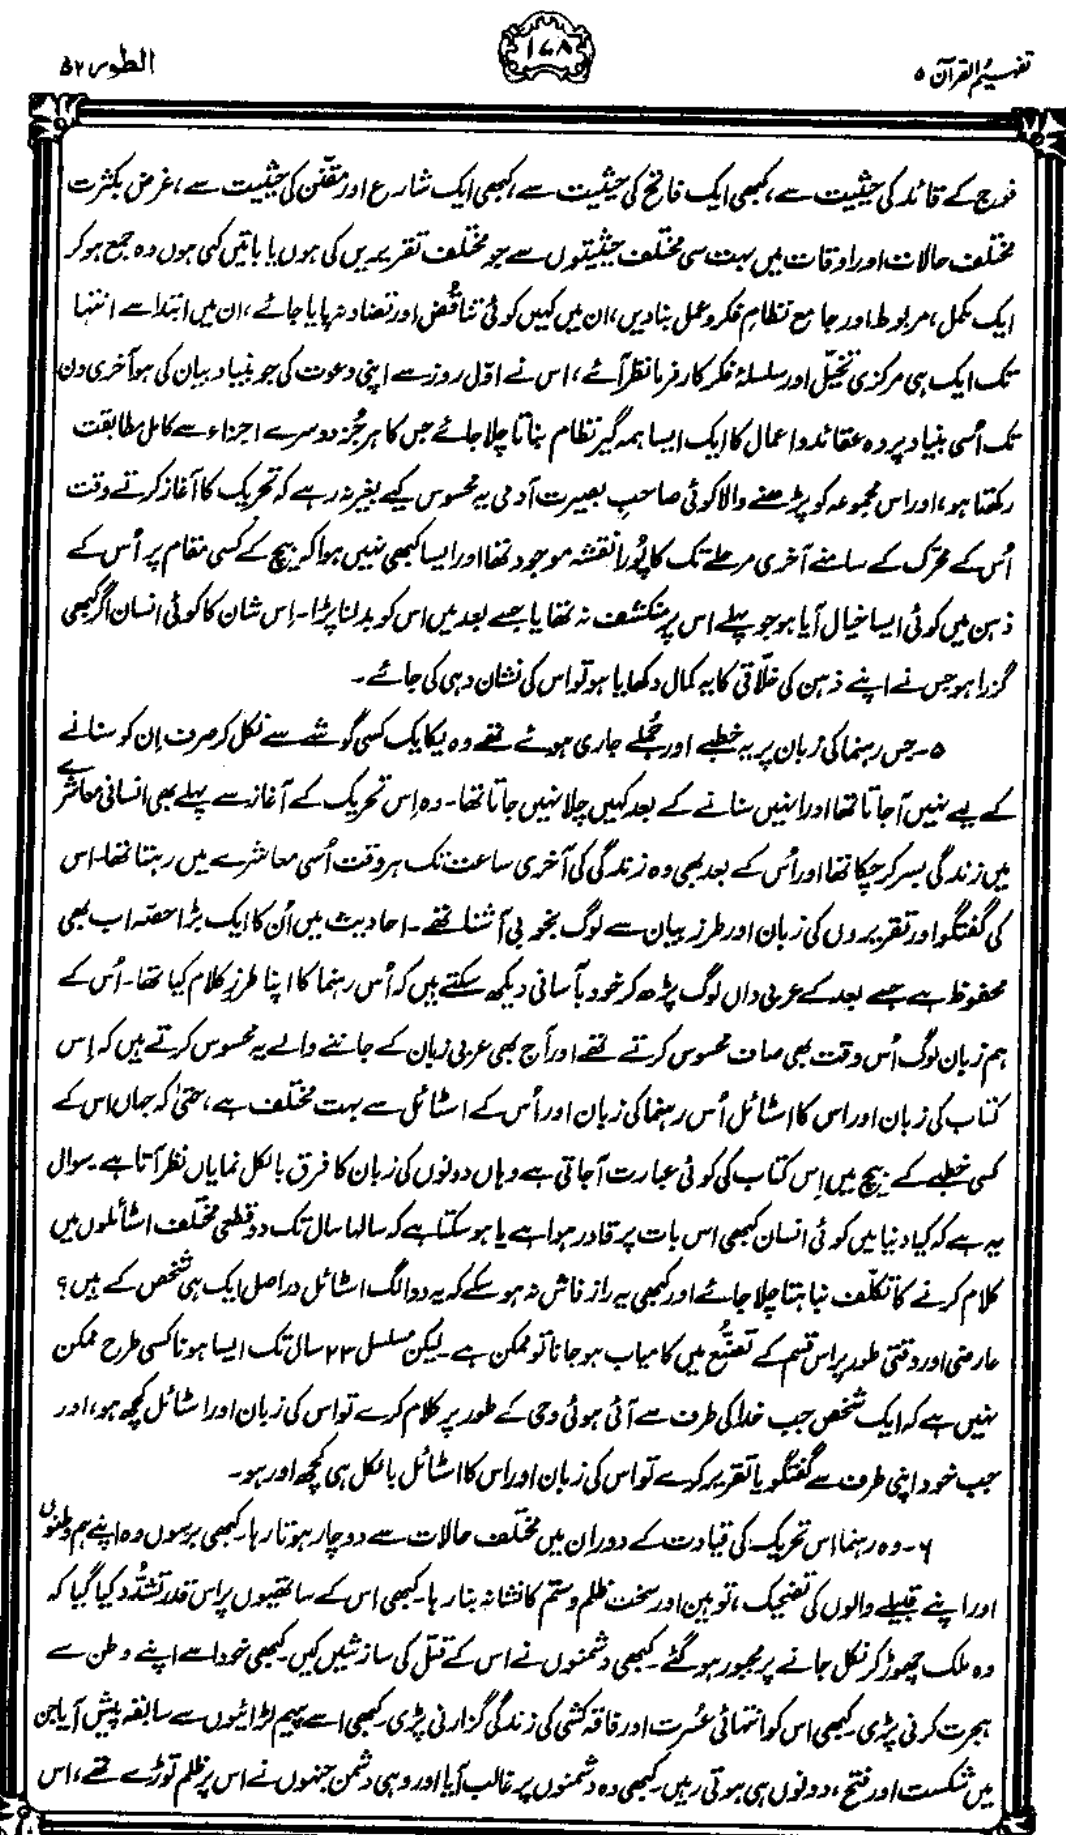 تفہیم القرآن ۵
۱۷۸
الطور ۵۲
فوج کے قائد کی حیثیت سے، کبھی ایک فاتح کی حیثیت سے، کبھی ایک شارع اور مقنّن کی حیثیت سے، غرض بکثرت
مختلف حالات اور اوقات میں بہت سی مختلف حیثیتوں سے جو مختلف تقریریں کی ہوں یا باتیں کہی ہوں وہ جمع ہو کر
ایک مکمل، مربوط اور جامع نظامِ فکر و عمل بنا دیں، ان میں کہیں کوئی تناقُض اور تضاد نہ پایا جائے، ان میں ابتدا سے انتہا
تک ایک ہی مرکزی تخیّل اور سلسلۂ فکر کار فرما نظر آئے، اس نے اوّل روز سے اپنی دعوت کی جو بنیاد بیان کی ہو آخری دن
تک اُسی بنیاد پر وہ عقائد و اعمال کا ایک ایسا ہمہ گیر نظام بناتا چلا جائے جس کا ہر جُز دوسرے اجزاء سے کامل مطابقت
رکھتا ہو، اور اس مجموعہ کو پڑھنے والا کوئی صاحبِ بصیرت آدمی یہ محسوس کیے بغیر نہ رہے کہ تحریک کا آغاز کرتے وقت
اُس کے محرّک کے سامنے آخری مرحلے تک کا پُورا نقشہ موجود تھا اور ایسا کبھی نہیں ہوا کہ بیچ کے کسی مقام پر اُس کے
ذہن میں کوئی ایسا خیال آیا ہو جو پہلے اس پر منکشف نہ تھا یا جسے بعد میں اس کو بدلنا پڑا۔ اِس شان کا کوئی انسان اگر کبھی
گزرا ہو جس نے اپنے ذہن کی خلّاقی کا یہ کمال دکھایا ہو تو اس کی نشان دہی کی جائے۔
۵۔ جس رہنما کی زبان پر یہ خطبے اور جُملے جاری ہوئے تھے وہ یکایک کسی گوشے سے نکل کر صرف اِن کو سنانے
کے لیے نہیں آ جاتا تھا اور انہیں سنانے کے بعد کہیں چلا نہیں جاتا تھا۔ وہ اِس تحریک کے آغاز سے پہلے بھی انسانی معاشرے
میں زندگی بسر کر چکا تھا اور اُس کے بعد بھی وہ زندگی کی آخری ساعت تک ہر وقت اُسی معاشرے میں رہتا تھا۔ اس
کی گفتگو اور تقریروں کی زبان اور طرزِ بیان سے لوگ بخوبی آشنا تھے۔ احادیث میں اُن کا ایک بڑا حصّہ اب بھی
محفوظ ہے جسے بعد کے عربی داں لوگ پڑھ کر خود بآسانی دیکھ سکتے ہیں کہ اُس رہنما کا اپنا طرزِ کلام کیا تھا۔ اُس کے
ہم زبان لوگ اُس وقت بھی صاف محسوس کرتے تھے اور آج بھی عربی زبان کے جاننے والے یہ محسوس کرتے ہیں کہ اِس
کتاب کی زبان اور اس کا اسٹائل اُس رہنما کی زبان اور اُس کے اسٹائل سے بہت مختلف ہے، حتیٰ کہ جہاں اس کے
کسی خطبے کے بیچ میں اِس کتاب کی کوئی عبارت آ جاتی ہے وہاں دونوں کی زبان کا فرق بالکل نمایاں نظر آتا ہے۔ سوال
یہ ہے کہ کیا دنیا میں کوئی انسان کبھی اس بات پر قادر ہوا ہے یا ہو سکتا ہے کہ سالہا سال تک دو قطعی مختلف اسٹائلوں میں
کلام کرنے کا تکلّف نباہتا چلا جائے اور کبھی یہ راز فاش نہ ہو سکے کہ یہ دو الگ اسٹائل دراصل ایک ہی شخص کے ہیں؟
عارضی اور وقتی طور پر اس قسم کے تصنُّع میں کامیاب ہو جانا تو ممکن ہے۔ لیکن مسلسل ۲۳ سال تک ایسا ہونا کسی طرح ممکن
نہیں ہے کہ ایک شخص جب خدا کی طرف سے آئی ہوئی وحی کے طور پر کلام کرے تو اس کی زبان اور اسٹائل کچھ ہو، اور
جب خود اپنی طرف سے گفتگو یا تقریر کرے تو اس کی زبان اور اس کا اسٹائل بالکل ہی کچھ اور ہو۔
۶۔ وہ رہنما اس تحریک کی قیادت کے دوران میں مختلف حالات سے دوچار ہوتا رہا۔ کبھی برسوں وہ اپنے ہم وطنوں
اور اپنے قبیلے والوں کی تضحیک، توہین اور سخت ظلم و ستم کا نشانہ بنا رہا۔ کبھی اس کے ساتھیوں پر اس قدر تشدُّد کیا گیا کہ
وہ ملک چھوڑ کر نکل جانے پر مجبور ہو گئے۔ کبھی دشمنوں نے اس کے قتل کی سازشیں کیں۔ کبھی خود اسے اپنے وطن سے
ہجرت کرنی پڑی۔ کبھی اس کو انتہائی عُسرت اور فاقہ کشی کی زندگی گزارنی پڑی۔ کبھی اسے پیہم لڑائیوں سے سابقہ پیش آیا جن
میں شکست اور فتح، دونوں ہی ہوتی رہیں۔ کبھی وہ دشمنوں پر غالب آیا اور وہی دشمن جنہوں نے اس پر ظلم توڑے تھے، اس